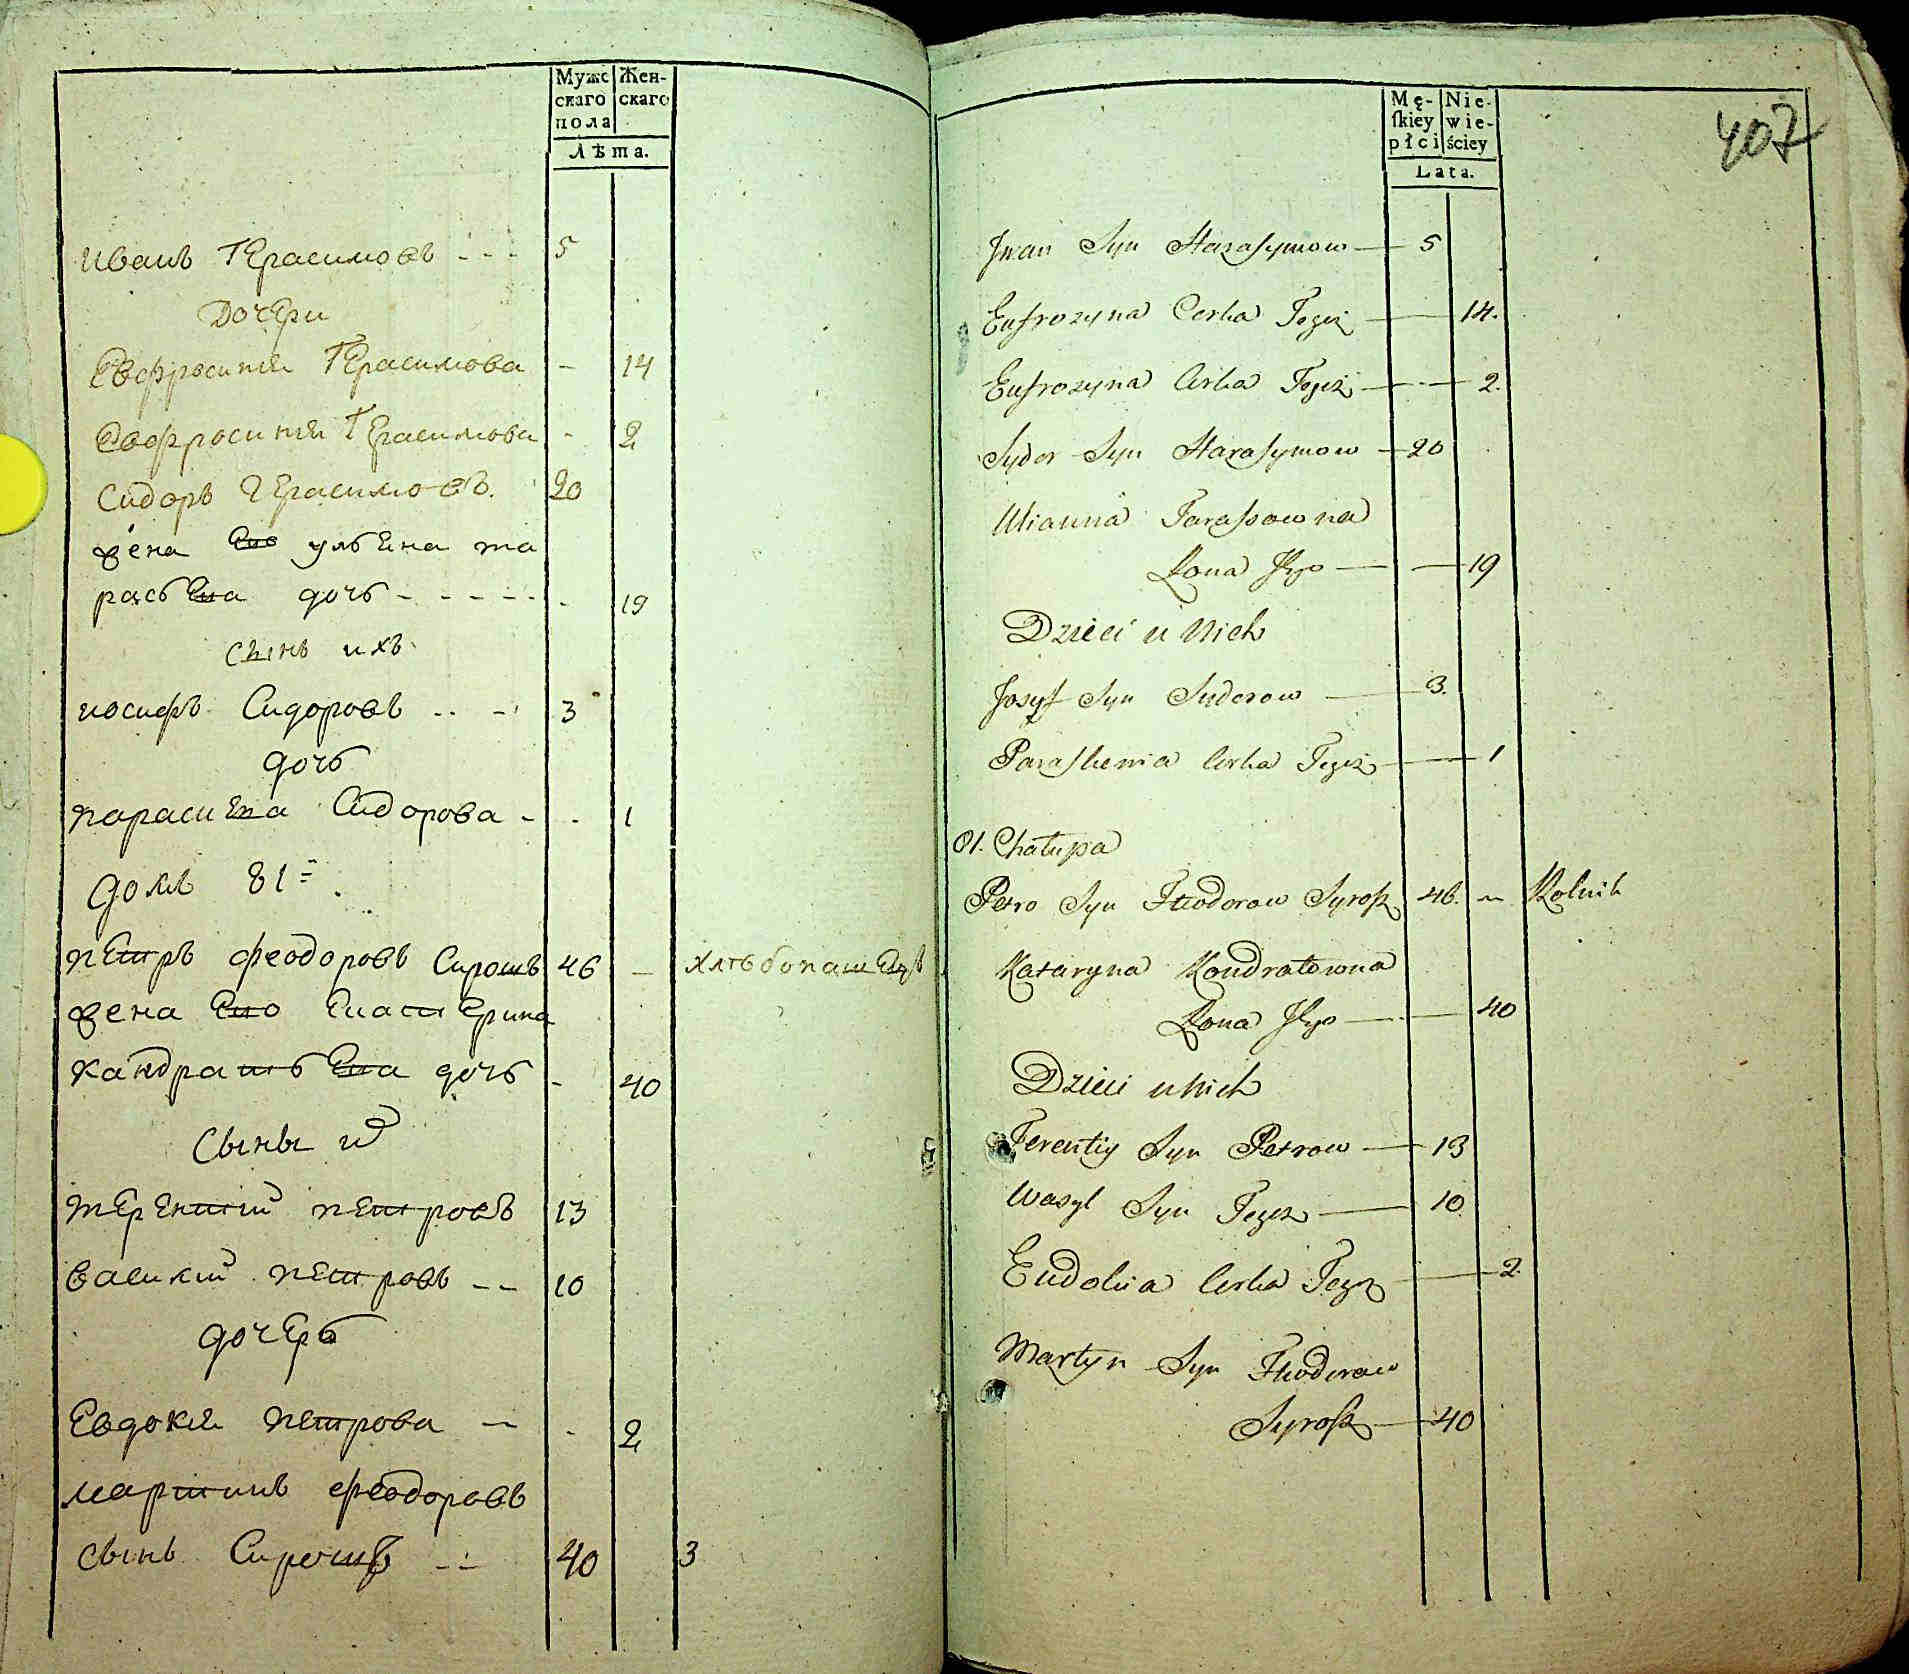 Мужс Жен-
скаго скаго
пола
Лѣта.
Иванъ Герасимовъ - - - 5
Дочери
Евфросиния Герасимова - 14
Евфросиния Герасимова - 2
Сидоръ Герасимовъ. 20
жена Его ульена та
расьева дочь - - - - - - 19
Сынъ ихъ
иосифъ Сидоровъ - - - 3
дочь
парасиева Сидорова - - 1
домъ 81
петръ феодоровъ Сирошъ 46 - хлѣбопашецъ
жена Его Екатерина
кандратьева дочь - 40
Сыны и
терентий петровъ 13
василий петровъ - - 10
дочерь
Евдокия петрова - - 2
мартинъ феодоровъ
сынъ Сирошъ - - 40 3
407
Mę- Nie-
ſkiey wie-
płci ściey
Lata.
Jwan Syn Harasymow — 5
Eufrozyna Corka Tegoż — 14.
Eufrozyna Corka Tegoż — 2.
Sydor Syn Harasymow — 20
Ulianna Tarasowna
Żona Jego — 19
Dzieci u Nich
Josyf Syn Sydorow — 3.
Paraskewia Corka Tegoż — 1
81. Chałupa
Petro Syn Fteodorow Syrosz 46. — Rolnik
Kataryna Kondratowna
Żona Jego — 40
Dzieci u Nich
Terentiy Syn Petrow — 13
Wasyl Syn Tegoż — 10
Eudokia Corka Tegoż — 2.
Martyn Syn Fteodorow
Syrosz — 40